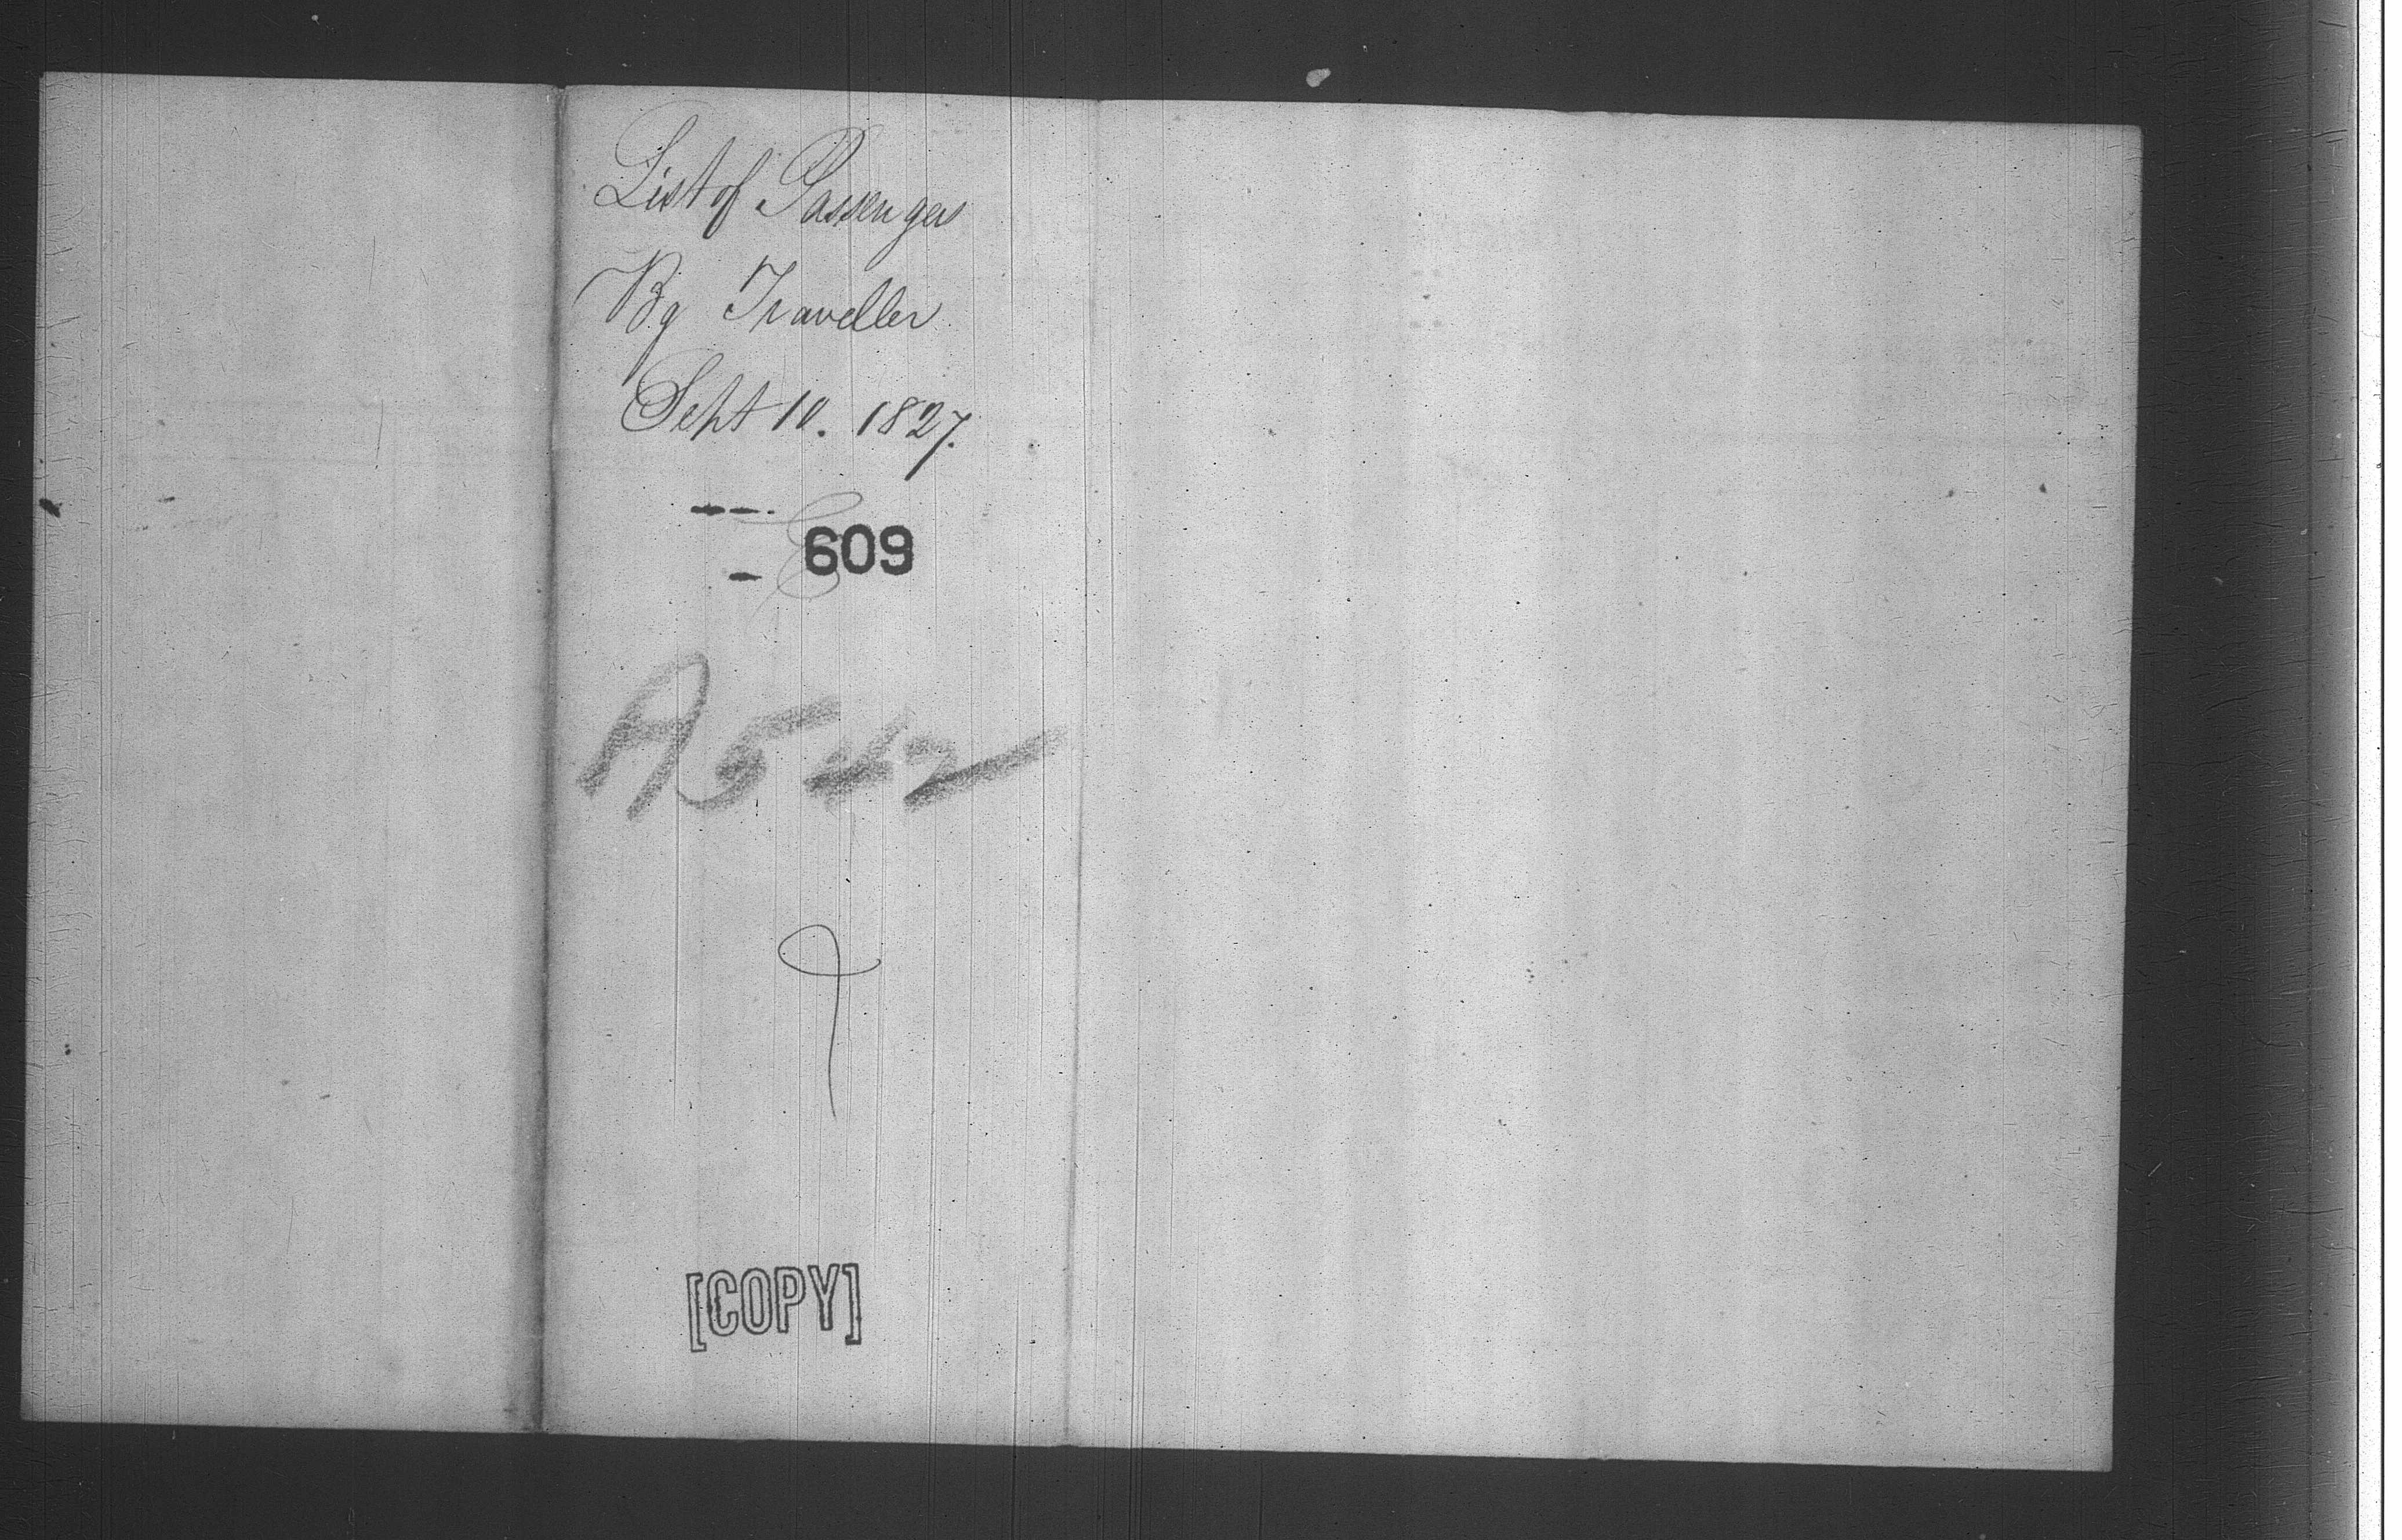 List of Passengers
Bg Traveller
Sept 10. 1827.
609
A542
[COPY]